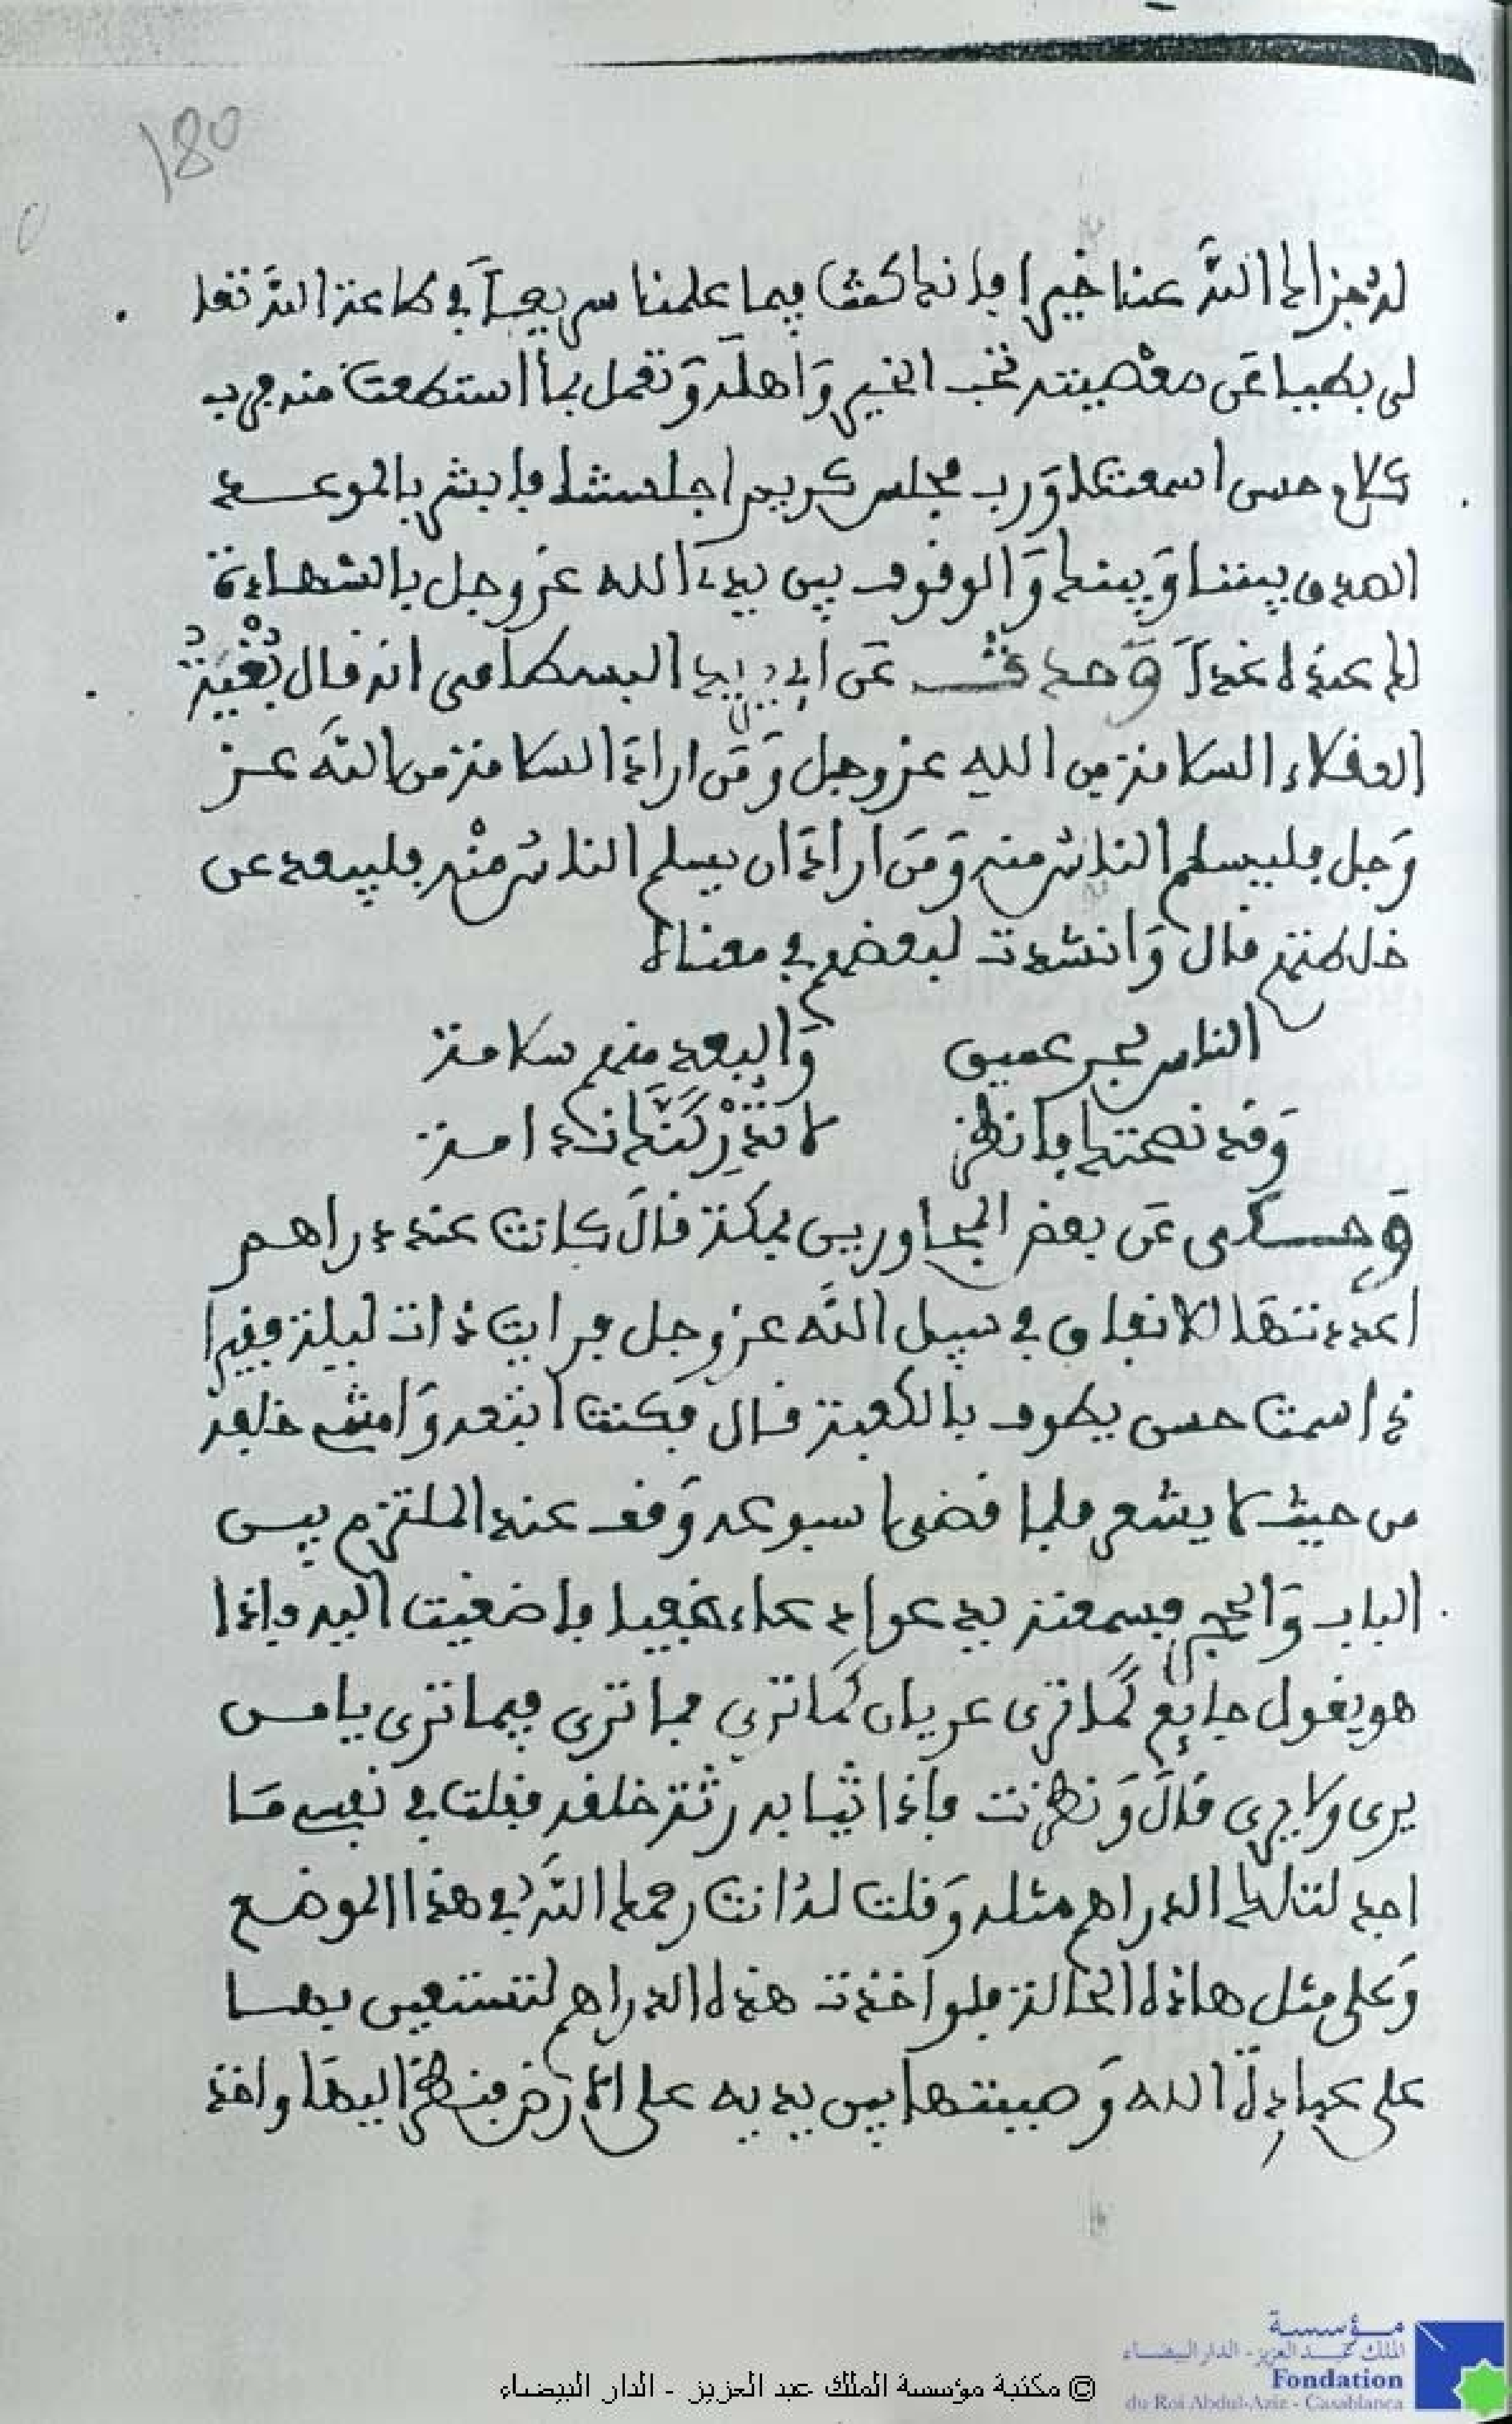 180
له جزاك الله عنا خيرا فانك كنت فيما علمنا سريعا في طاعة الله تعلى
بطيا عن معصيته تحب الخير واهله وتعمل بما استطعت منه فرب
كلام حسن اسمعتنا ورب مجلس كريم اجلستنا فابشر بالموعد
الصدق بيننا وبينك والوقوف بين يدي الله عز وجل بالشهادة
لك عنده غدا وحدثت عن ابي يزيد البسطامي انه قال بغية
العقلاء السلامة من الله عز وجل ومن اراد السلامة من الله عز
وجل فليسلم الناس منه ومن اراد ان يسلم الناس منه فليبعد عن
خلطتهم قال وانشدت لبعضهم في معناه
الناس بحر عميق والبعد منهم سلامة
وقد نصحتك فانظر لا تدركنك ندامة
وحكي عن بعض المجاورين بمكة قال كانت عندي دراهم
اعددتها للانفاق في سبيل الله عز وجل فرايت ذات ليلة فقيرا
ذا سمت حسن يطوف بالكعبة قال فكنت اتبعه وامشي خلفه
من حيث لا يشعر فلما قضى اسبوعه وقف عند الملتزم بين
الباب والحجر فسمعته يدعوا دعاء خفيا فاصغيت اليه فاذا
هو يقول جايع كما ترى عريان كما ترى فما ترى فيما ترى يا من
يرى ولا يرى قال ونظرت فاذا ثيابه رثة خلقه فقلت في نفسي ما
اجد لتلك الدراهم مثله وقلت له انت رحمك الله في هذا الموضع
وعلى مثل هاذه الحالة فلو اخذت هذه الدراهم لتستعين بها
على عبادة الله وصببتها بين يديه على الارض فنظر اليها واخذ
© مكتبة مؤسسة الملك عبد العزيز - الدار البيضاء
مؤسسة
الملك عبد العزيز - الدار البيضاء
Fondation
du Roi Abdul-Aziz - Casablanca